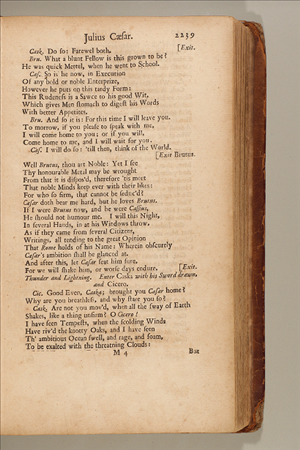 Julius Cæsar. 2239
Cask. Do so: Farewel both. [Exit.
Bru. What a blunt Fellow is this grown to be?
He was quick Mettel, when he went to School.
Cas. So is he now, in Execution
Of any bold or noble Enterprize,
However he puts on this tardy Form:
This Rudeness is a Sawce to his good Wit,
Which gives Men stomach to digest his Words
With better Appetites.
Bru. And so it is: For this time I will leave you.
To morrow, if you please to speak with me,
I will come home to you; or if you will,
Come home to me, and I will wait for you.
Cas. I will do so: 'till then, think of the World.
[Exit Brutus.
Well Brutus, thou art Noble: Yet I see
Thy honourable Metal may be wrought
From that it is dispos'd, therefore 'tis meet
That noble Minds keep ever with their likes:
For who so firm, that cannot be seduc'd?
Cæsar doth bear me hard, but he loves Brutus.
If I were Brutus now, and he were Cassius,
He should not humour me. I will this Night,
In several Hands, in at his Windows throw,
As if they came from several Citizens,
Writings, all tending to the great Opinion
That Rome holds of his Name: Wherein obscurely
Cæsar's ambition shall be glanced at.
And after this, let Cæsar seat him sure,
For we will shake him, or worse days endure. [Exit.
Thunder and Lightning. Enter Caska with his Sword drawn,
and Cicero.
Cic. Good Even, Caska; brought you Cæsar home?
Why are you breathless, and why stare you so?
Cask. Are not you mov'd, when all the sway of Earth
Shakes, like a thing unfirm? O Cicero!
I have seen Tempests, when the scolding Winds
Have riv'd the knotty Oaks, and I have seen
Th' ambitious Ocean swell, and rage, and foam,
To be exalted with the threatning Clouds:
M 4 But